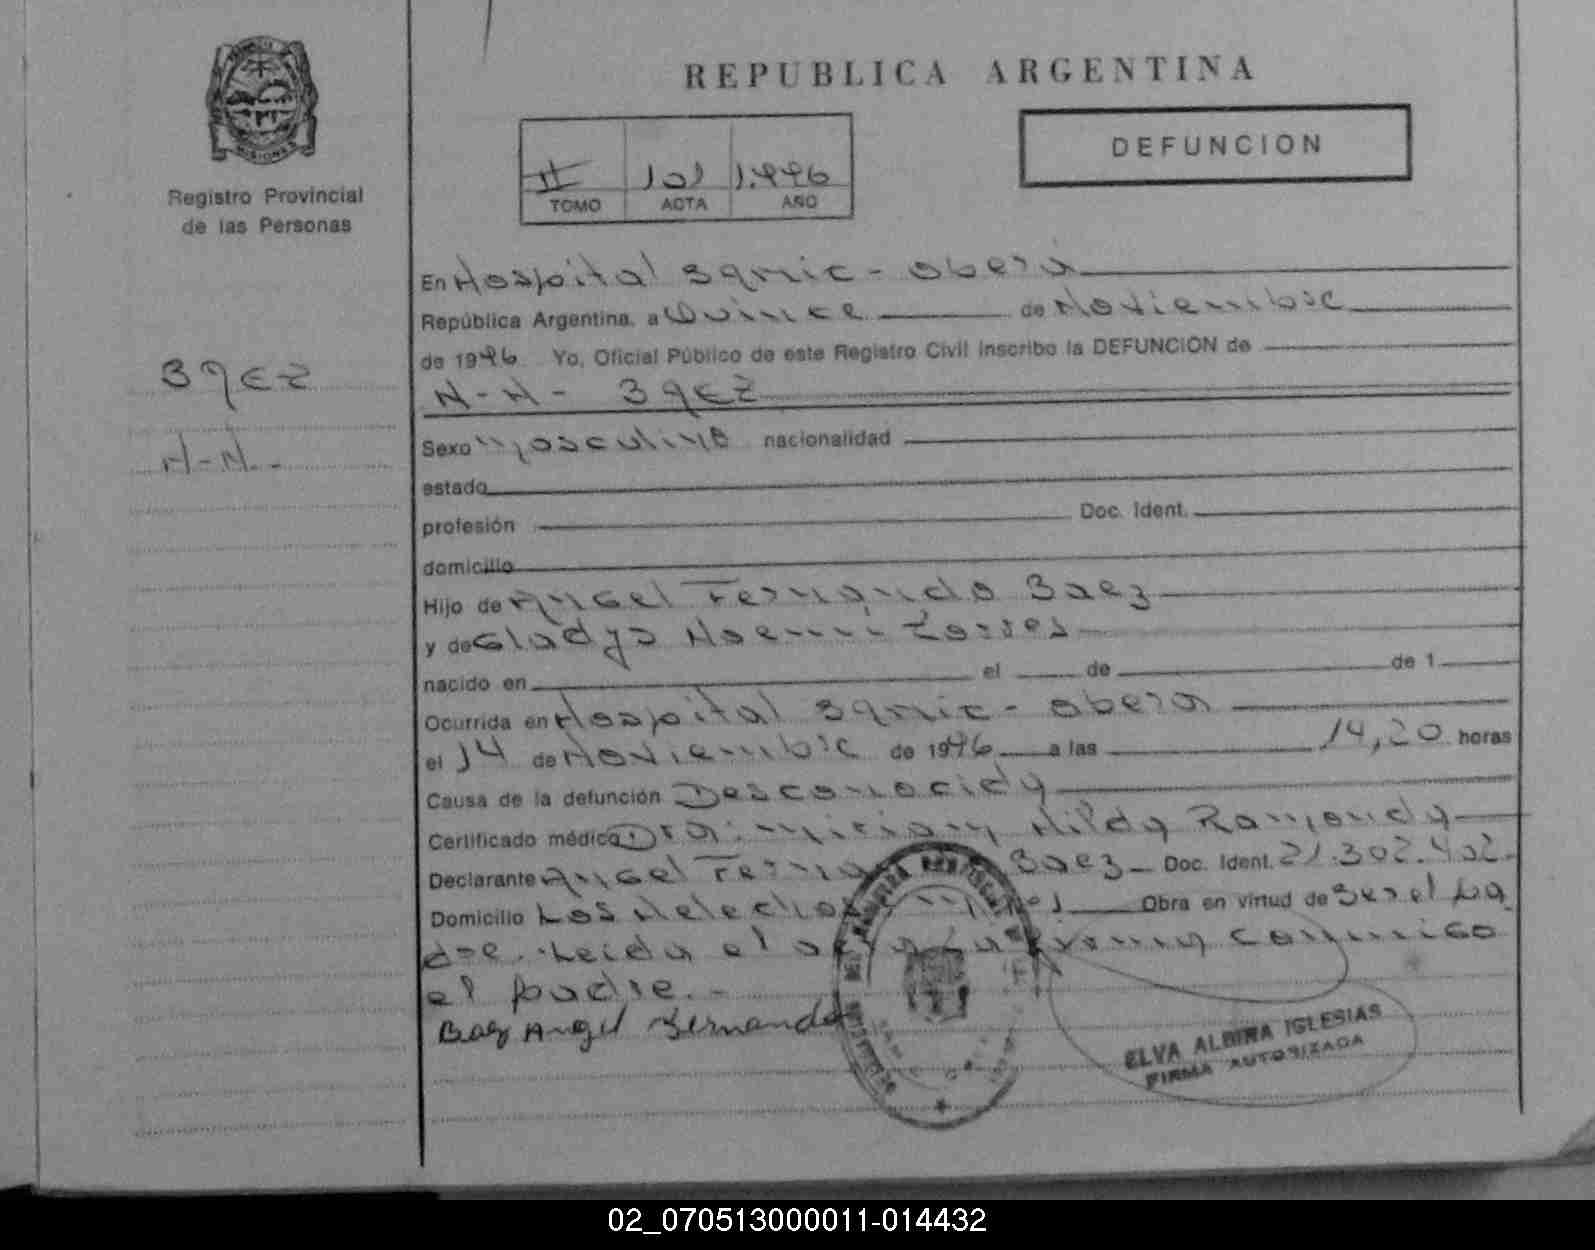 MISIONES
Registro Provincial
de las Personas
REPUBLICA ARGENTINA
DEFUNCION
II 101 1.996
TOMO ACTA AÑO
En Hospital Samic - Oberá
República Argentina, a Quince de Noviembre
de 1996. Yo, Oficial Público de este Registro Civil inscribo la DEFUNCION de
Baez
N-N - Baez
N-N.-
Sexo masculino nacionalidad
estado
profesión Doc. Ident.
domicilio
Hijo de Angel Fernando Baez
y de Gladys Noemí Torres
nacido en el de de 1
Ocurrida en Hospital Samic - Oberá
el 14 de Noviembre de 1996 a las 14,20 horas
Causa de la defunción Desconocida
Certificado médico Dra: Miriam Hilda Ramondy
Declarante Angel Baez - Doc. Ident. 21.302.402.
Domicilio Los Helechos Obra en virtud de Ser el Pa
dre. Leida el acta firma conmigo
el padre.-
Baez Angel Fernando
ELVA ALBINA IGLESIAS
FIRMA AUTORIZADA
02_070513000011-014432